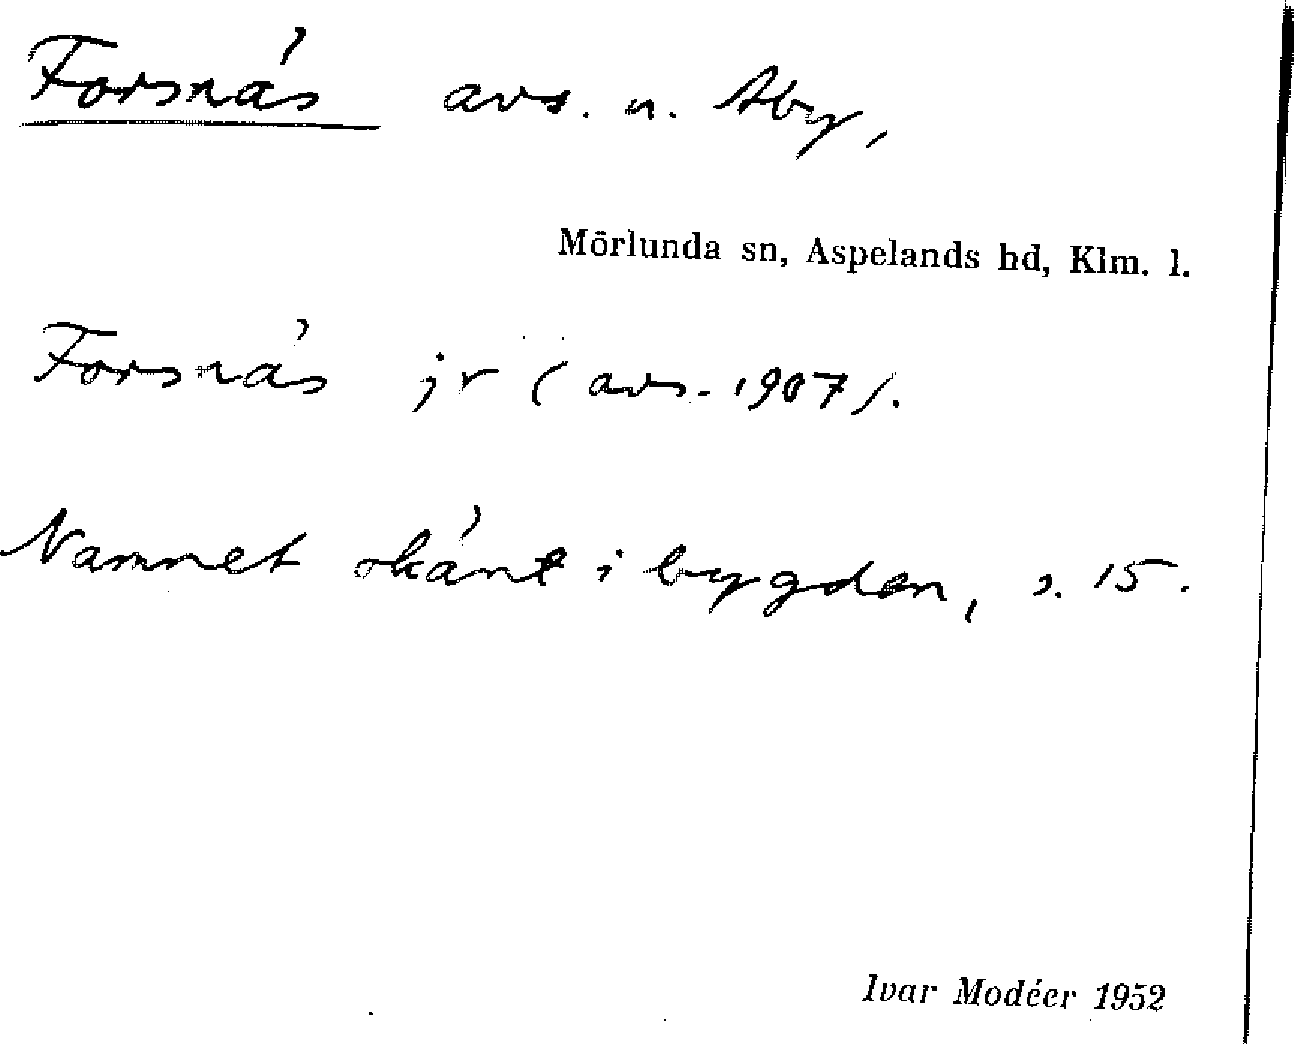 Forsnäs avs. u. Åby,
Mörlunda sn, Aspelands hd, Klm. l.
Forsnäs jr (avs. 1907).
Namnet okänt i bygden, s. 15.
Ivar Modéer 1952